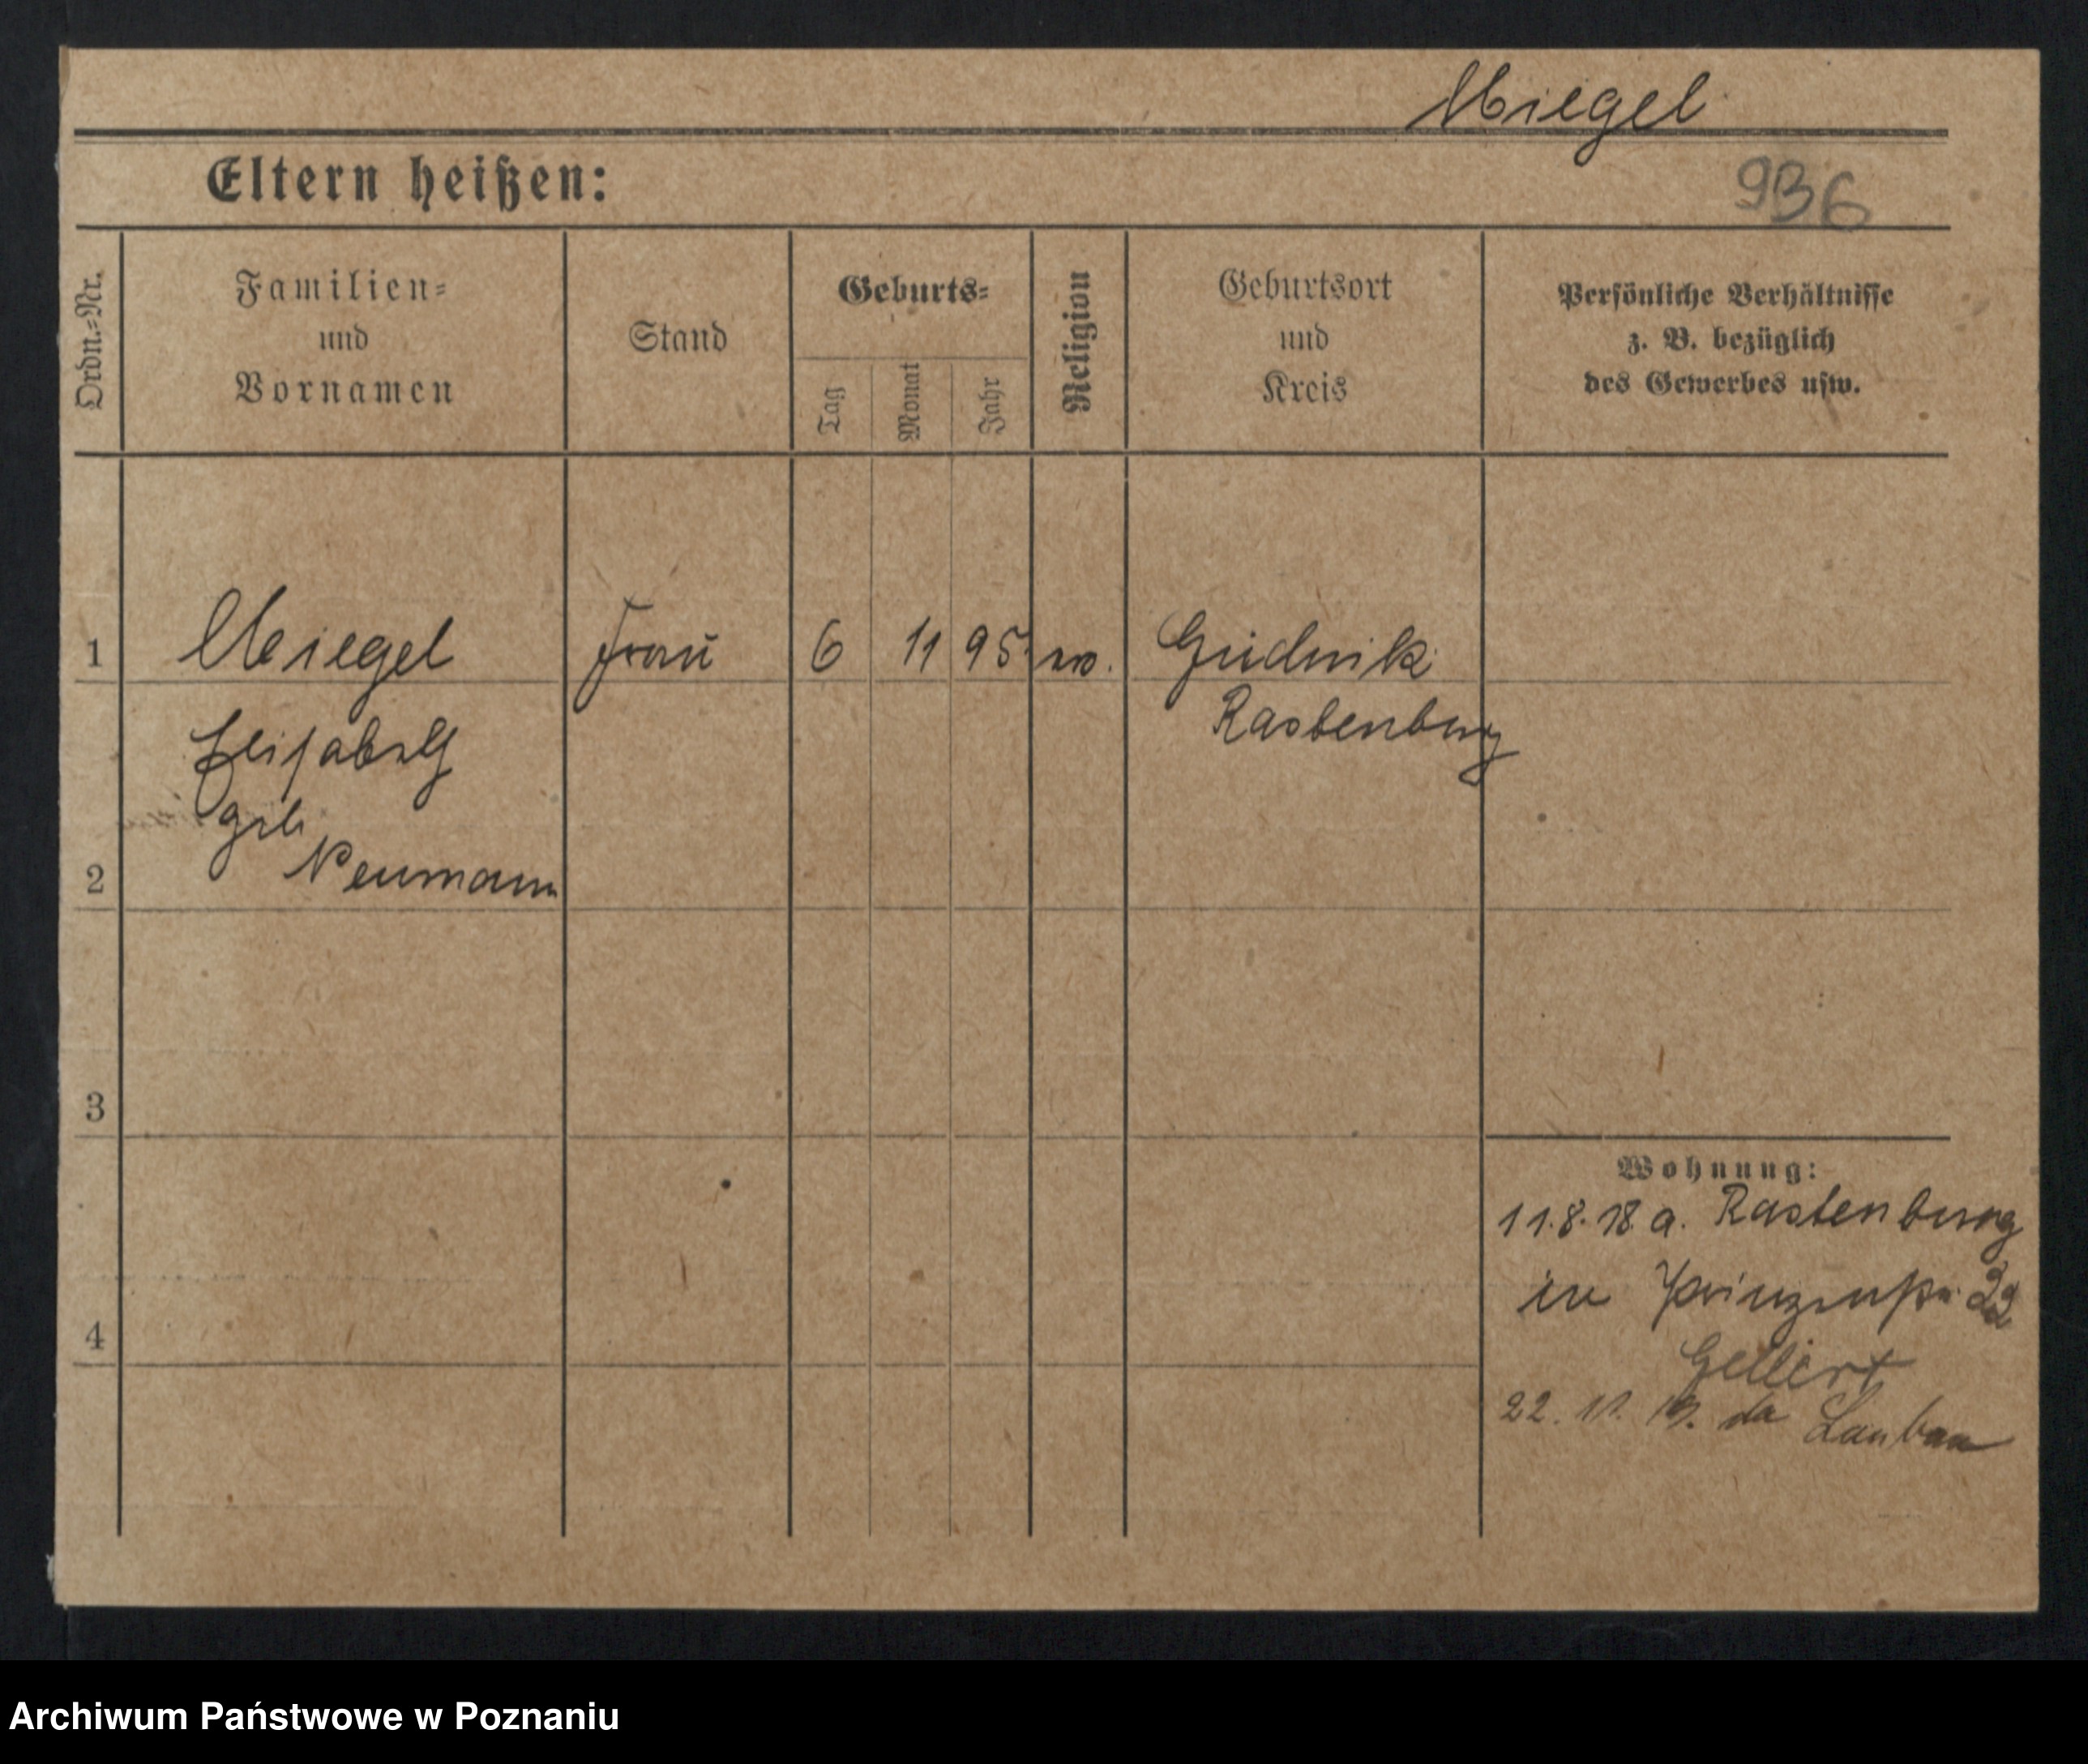 Miegel
Eltern heißen:
936
Ordn.=Nr.
Familien=
und
Vornamen
Stand
Geburts=
Tag
Monat
Jahr
Religion
Geburtsort
und
Kreis
Persönliche Verhältnisse
z. B. bezüglich
des Gewerbes usw.
1
Miegel Frau 6 11 95 ev. Gudnik
Rastenburg
Elisabeth
geb.
Neumann
2
3
4
Wohnung:
11.8.18 a. Rastenburg
in Prinzenstr.
Gellert
22. 11. da Lauban
Archiwum Państwowe w Poznaniu